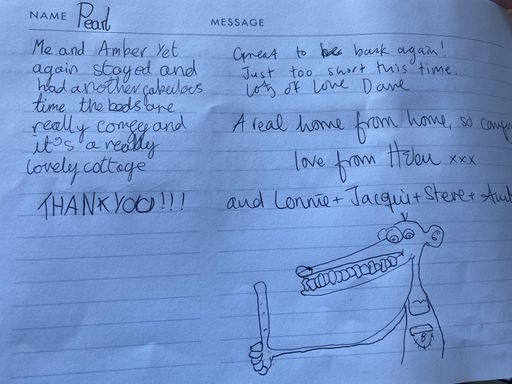 NAME Pearl
MESSAGE
Me and Amber yet
again stayed and
had another fabulous
time the beds are
really comfey and
it's a really
lovely cottage
THANKYOU!!!
Great to be back again!
Just too short this time.
lots of love Dave
A real home from home, so
love from Helen xxx
and Lonnie + Jacqui + Steve +